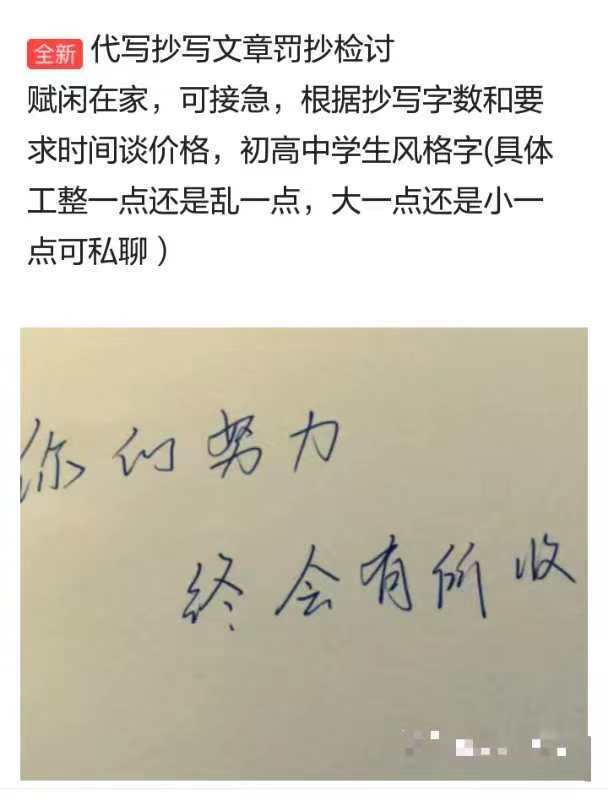 全新 代写抄写文章罚抄检讨
赋闲在家，可接急，根据抄写字数和要
求时间谈价格，初高中学生风格字(具体
工整一点还是乱一点，大一点还是小一
点可私聊 ）
你们努力
终会有所收